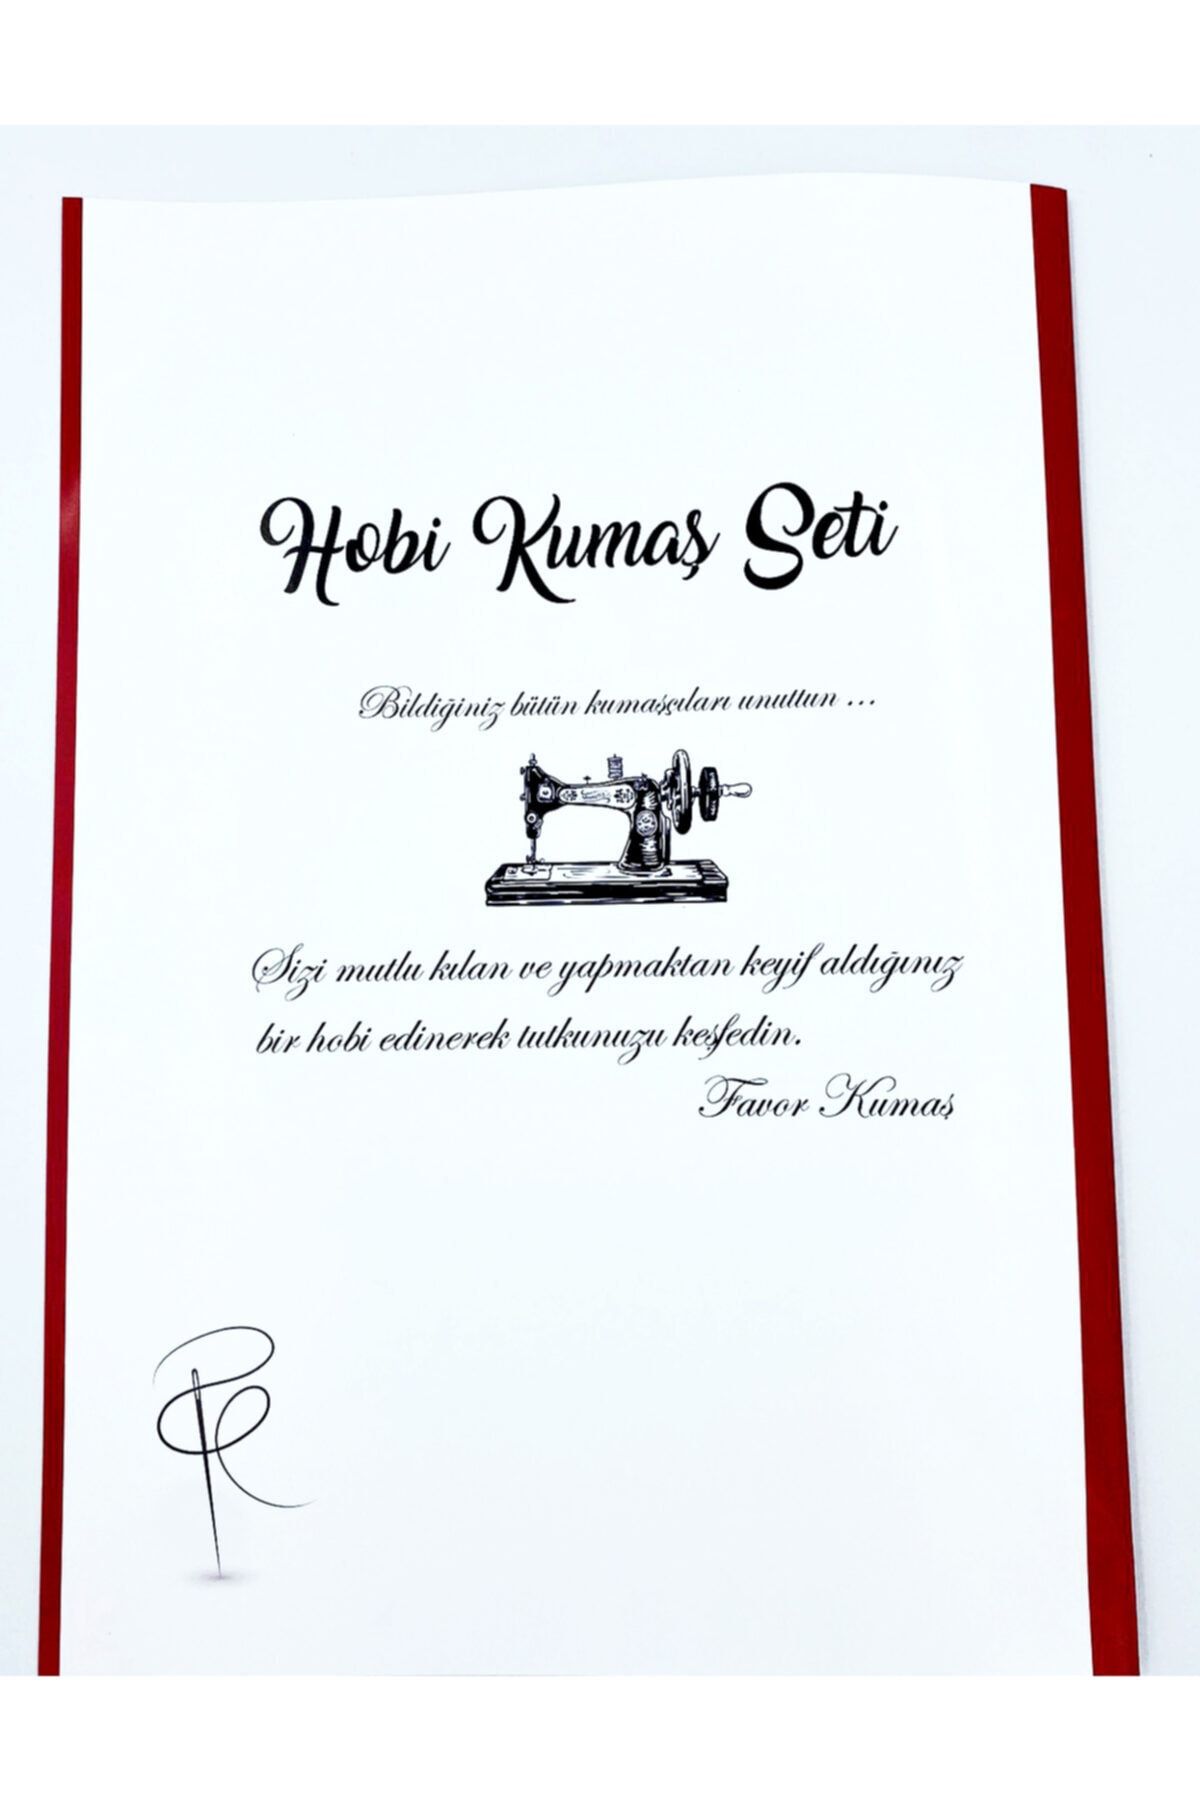 Hobi Kumaş Seti
Bildiğiniz bütün kumaşçıları unuttun ...
Sizi mutlu kılan ve yapmaktan keyif aldığınız
bir hobi edinerek tutkunuzu keşfedin.
Favor Kumaş